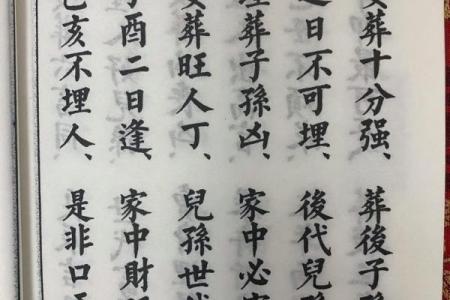 葬十分强、葬後子孫
日不可埋、後代兒
葬子孫凶、家中必
葬旺人丁、兒孫世
酉二日逢、家中財
亥不埋人、是非口